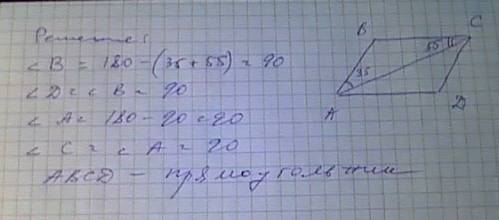 Решение:
∠B = 180 - (35 + 55) = 90
∠D = ∠B = 90
∠A = 180 - 90 = 90
∠C = ∠A = 90
ABCD - прямоугольник
B
C
55
35
A
D